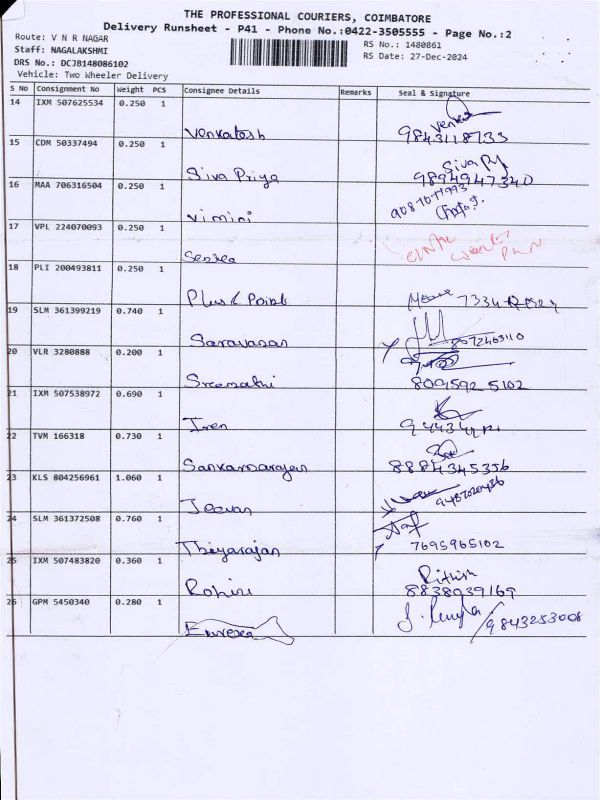 THE PROFESSIONAL COURIERS, COIMBATORE
Delivery Runsheet - P41 - Phone No.:0422-3505555 - Page No.:2
Route: V N R NAGAR
RS No.: 1480861
Staff: NAGALAKSHMI
RS Date: 27-Dec-2024
DRS No.: DCJB148086102
Vehicle: Two Wheeler Delivery
S No Consignment No Weight PCS Consignee Details Remarks Seal & Signature
14 IXM 507625534 0.250 1
Venkatesh 9843118733
15 CDM 50337494 0.250 1
Siva Priya 9894947340
16 MAA 706316504 0.250 1
Vimini
17 VPL 224070093 0.250 1
18 PLI 200493811 0.250 1
Plus Point
19 SLM 361399219 0.740 1
Saravanan 8072463110
20 VLR 3280888 0.200 1
Sreemathi 8095925102
21 IXM 507538972 0.690 1
22 TVM 166318 0.730 1
Sankaranarayan 8884345356
23 KLS 804256961 1.060 1
Jeevan
24 SLM 361372508 0.760 1
Thiyarajan 7695965102
25 IXM 507483820 0.360 1
Rithish
Rohini 8838039169
26 GPM 5450340 0.280 1
9843253008